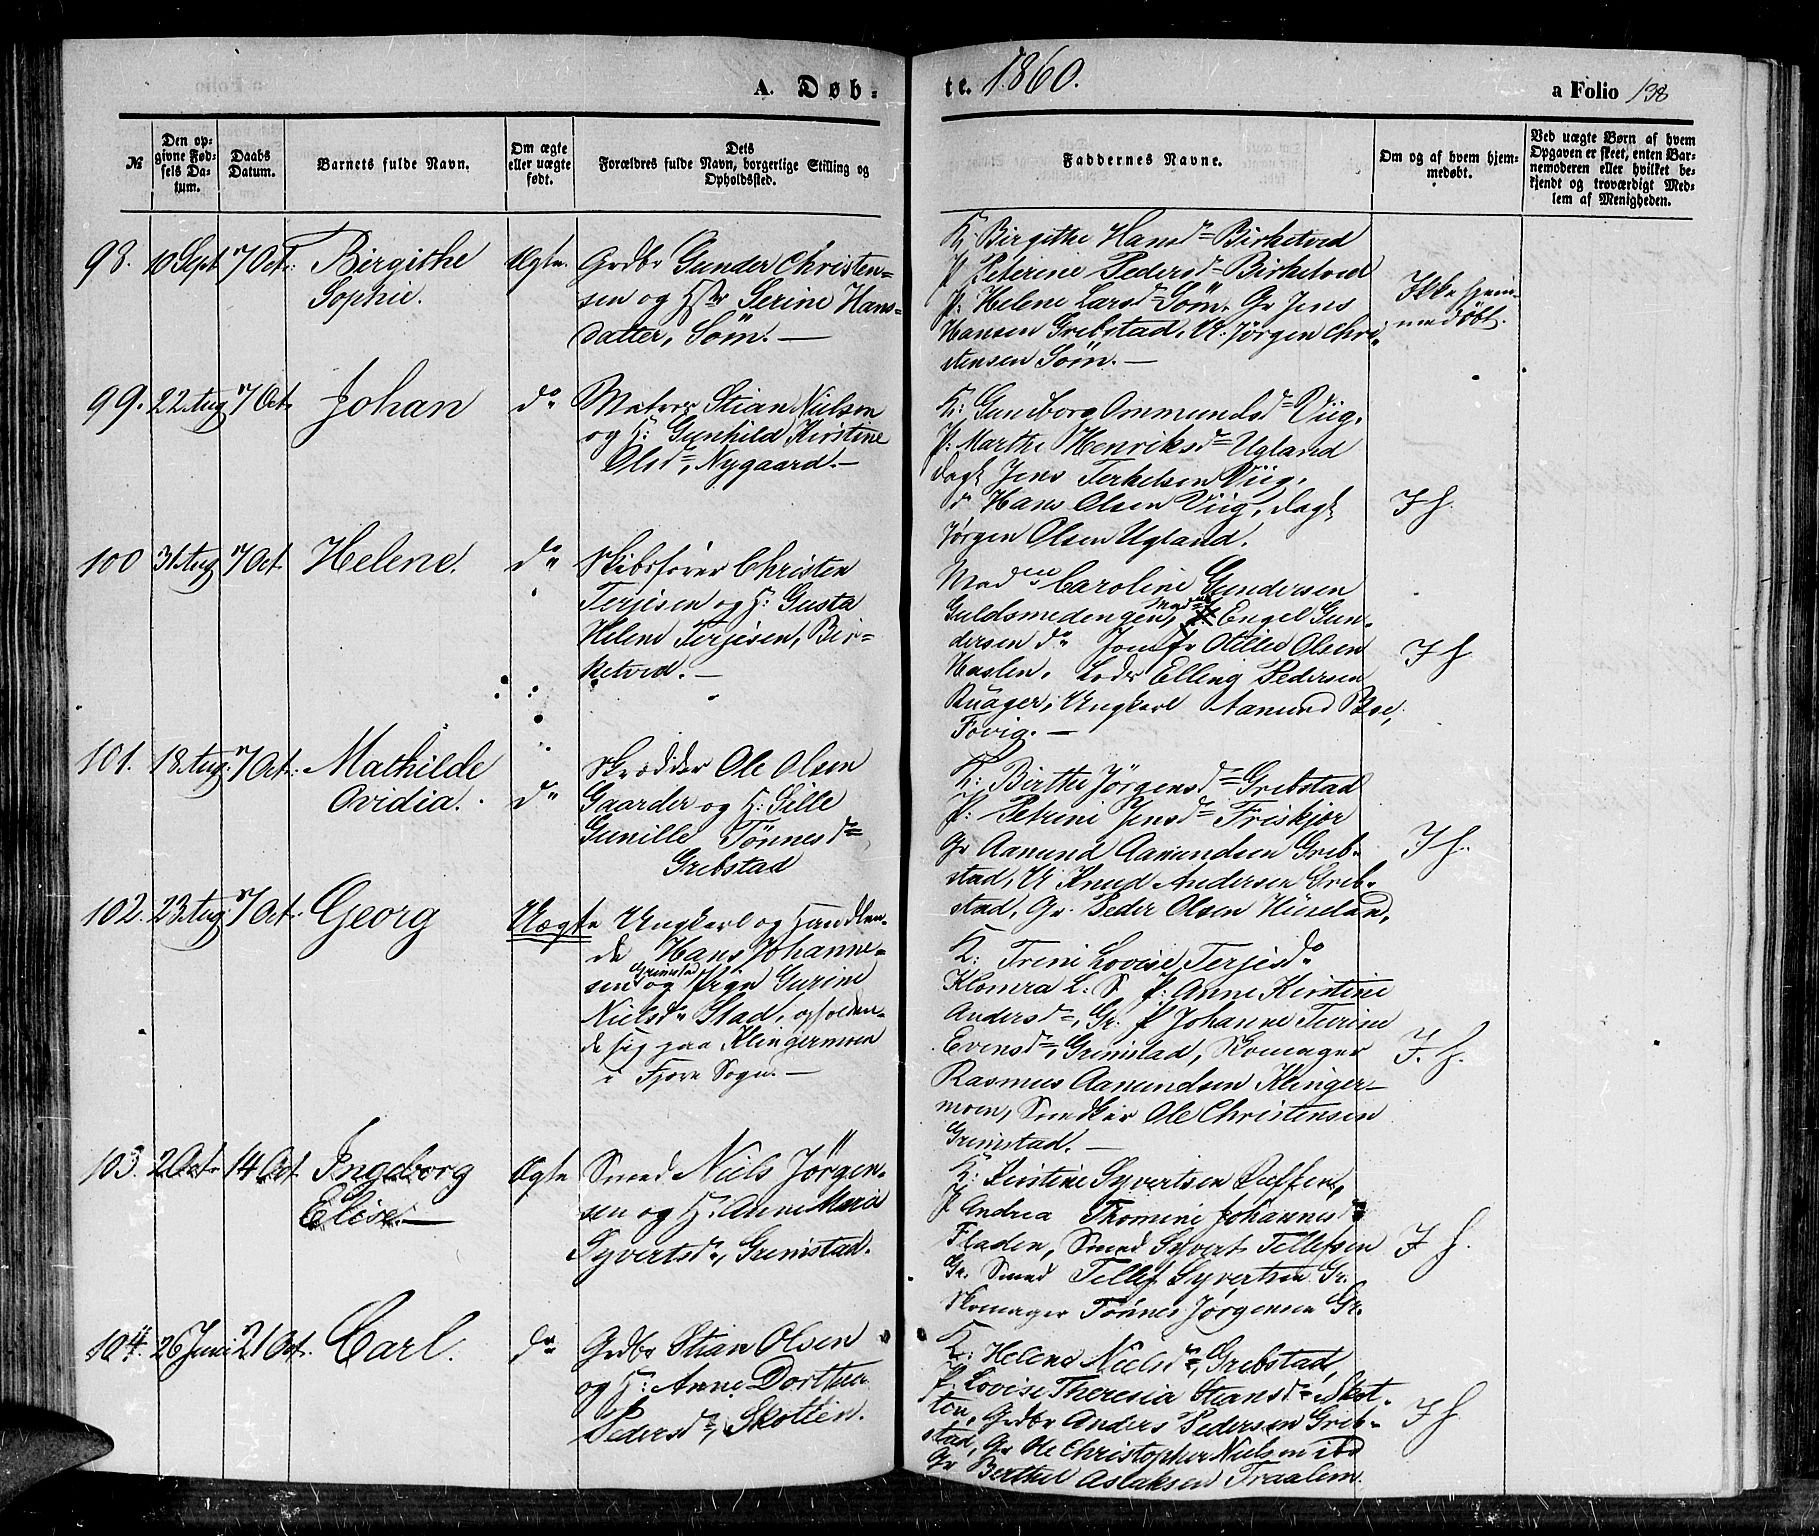 A. Døb-
te. 1860.
a Folio 138
№
Den op-
givne Fød-
sels Da-
tum.
Daabs
Datum.
Barnets fulde Navn.
Om ægte
eller uægte
født.
Dets
Forældres fulde Navn, borgerlige Stilling og
Opholdssted.
Faddernes Navne.
Om og af hvem hjem-
medøbt.
Ved uægte Børn af hvem
Opgaven er skeet, enten Bar-
nemoderen eller hvilket be-
kjendt og troværdigt Med-
lem af Menigheden.
98. 10 Sept 7 Oct: Birgithe
Sophie.
Ægte.
Grdbr Gunder Christen-
sen og Hstr Serine Hans-
datter, Søm. —
K: Birgithe Hansdr Birketved
P: Peterine Pedersdr Birketved
P: Helene Larsdr Søm. Gr Jens
Hansen Grebstad. U. Jørgen Chri-
stensen Søm. —
Ikke hjem-
medøbt.
99. 22 Aug 7 Oct. Johan
do
Matros Stian Nielsen
og H: Gunhild Kirstine
Olsdr, Nygaard. —
K: Gunborg Ommundsdr Viig.
P: Marthe Henriksdr Ugland
Dagl Jens Terkelsen Viig.
do Hans Olsen Viig, Dagl
Jørgen Olsen Ugland.
I H.
100 31 Aug 7 Oct. Helene.
do
Skibsfører Christen
Terjesen og H: Gusta
Helene Terjesen, Bir-
ketved. —
Madme Caroline Gundersen
Guldsmedengen, Madme Engel Gun-
dersen do Jomfr Otilie Olsen
Haslen. Lods Elling Pedersen
Ruager, Ungkarl Aamund Boe,
Føvig. —
I H.
101. 18 Aug. 7 Oct: Mathilde
Ovidia.
do
Skrædder Ole Olsen
Gaarder og H: Sille
Gunille Tønnesdr
Grebstad
K: Birthe Jørgensdr Grebstad
P: Petrine Jensdr Friskjor
Gr Aamund Aamundsen Greb-
stad, U Knud Andersen Greb-
stad, Gr. Peder Olsen Huseland.
I H.
102. 23 Aug 7 Oct: Georg
Uægte
Ungkarl og Handlen-
de Hans Johanne-
sen Grimstd og Pige Gurine
Nielsdr Stad, opholden-
de sig paa Klingermoen
i Fjære Sogn. —
K: Trine Lovise Terjesdr
Klomra L: S P: Anne Kirstine
Andersdr, Gr. P Johanne Turine
Evensdr, Grimstad, Skomager
Rasmus Aamundsen Klinger-
moen, Snedker Ole Christensen
Grimstad. —
I. H.
103. 2 Oct. 14 Oct. Ingeborg
Elise. —
Ægte
Smed Niels Jørgen-
sen og H: Anne Maria
Syvertsdr, Grimstad.
K: Kirstine Syvertsen
P Andrea Thomine Johannesdr
Fladen, Smed Syvert Tellefsen
Gr. Smed Tellef Syvertsen Gr.
Skomager Tønnes Jørgensen Gr.
I H.
104. 26 Juni 21 Oct. Carl.
do
Grdbr Stian Olsen
og H: Anne Dorthea
Pedersdr, Skotten.
K: Helene Nielsdr, Grebstad,
P: Lovise Theresia Stiansdr Skot-
ten, Grdbr Anders Pedersen Greb-
stad, Gr Ole Christopher Nielsen ibd
Gr Berthel Aslaksen Traalem
I H